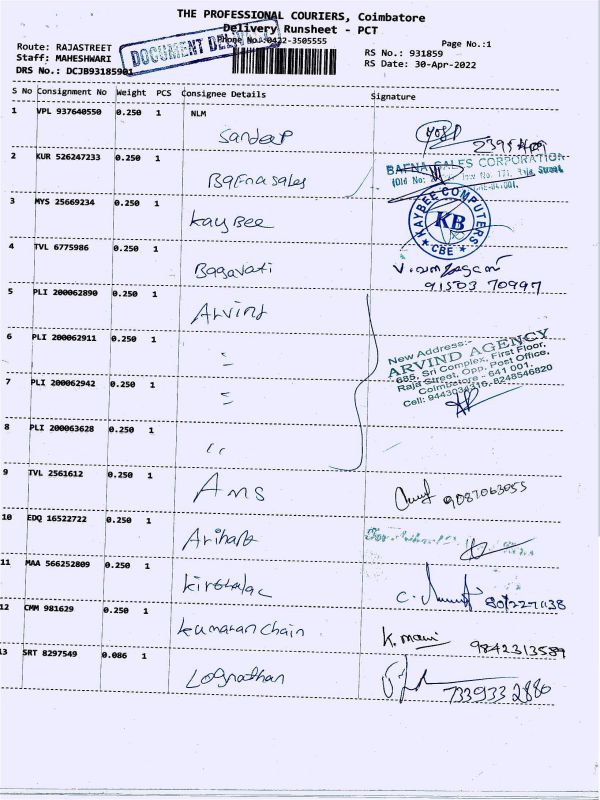 THE PROFESSIONAL COURIERS, Coimbatore
Delivery Runsheet - PCT
Phone No.:0422-3505555
Page No.:1
Route: RAJASTREET
Staff: MAHESHWARI
DRS No.: DCJB93185901
DOCUMENT
RS No.: 931859
RS Date: 30-Apr-2022
S No Consignment No Weight PCS Consignee Details Signature
1 VPL 937640550 0.250 1 NLM
Sandeep
2 KUR 526247233 0.250 1 Bafna sales
BAFNA SALES CORPORATION
Raja Street,
3 MYS 25669234 0.250 1 Kay Bee
KAYBEE COMPUTERS
KB
CBE
4 TVL 6775986 0.250 1 Bagavati
91503 70997
5 PLI 200062890 0.250 1 Arvind
6 PLI 200062911 0.250 1 "
7 PLI 200062942 0.250 1 "
8 PLI 200063628 0.250 1 "
New Address:-
ARVIND AGENCY
685, Sri Complex, First Floor,
Raja Street, Opp. Post Office,
Coimbatore - 641 001.
Cell: 9443034316, 8248546820
9 TVL 2561612 0.250 1 Ams
9087063055
10 EDQ 16522722 0.250 1 Arihant
11 MAA 566252809 0.250 1
12 CMM 981629 0.250 1 Kumaran Chain
K. mani 9842313589
13 SRT 8297549 0.086 1 Loganathan
7339332880